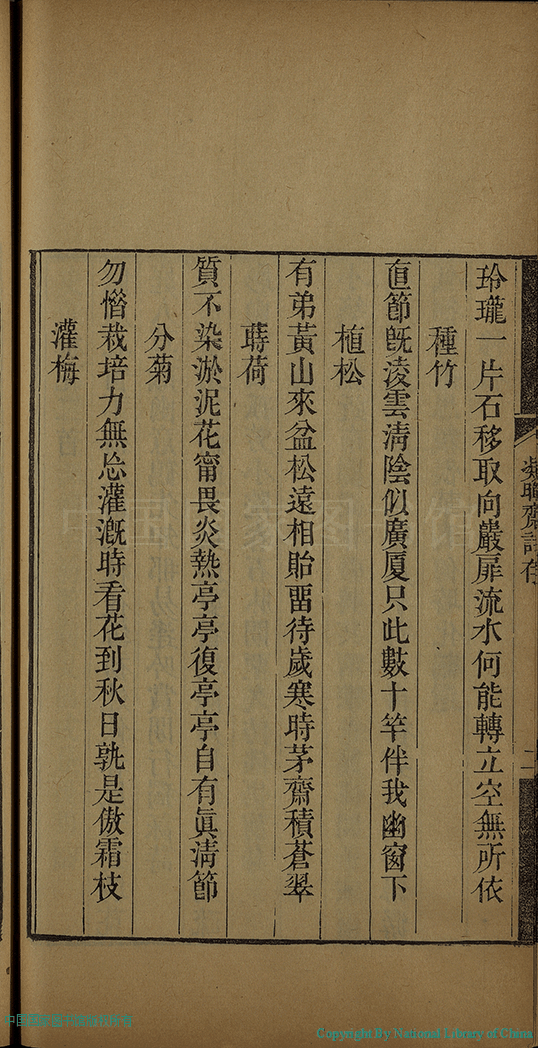 玲瓏一片石移取向巖扉流水何能轉立空無所依
種竹
直節旣淩雲淸陰似廣厦只此數十竿伴我幽窗下
植松
有弟黃山來盆松遠相貽畱待歲寒時茅齋積蒼翠
蒔荷
質不染淤泥花甯畏炎熱亭亭復亭亭自有眞淸節
分菊
勿惜栽培力無忘灌漑時看花到秋日孰是傲霜枝
灌梅
中国国家图书馆
Copyright By National Library of China